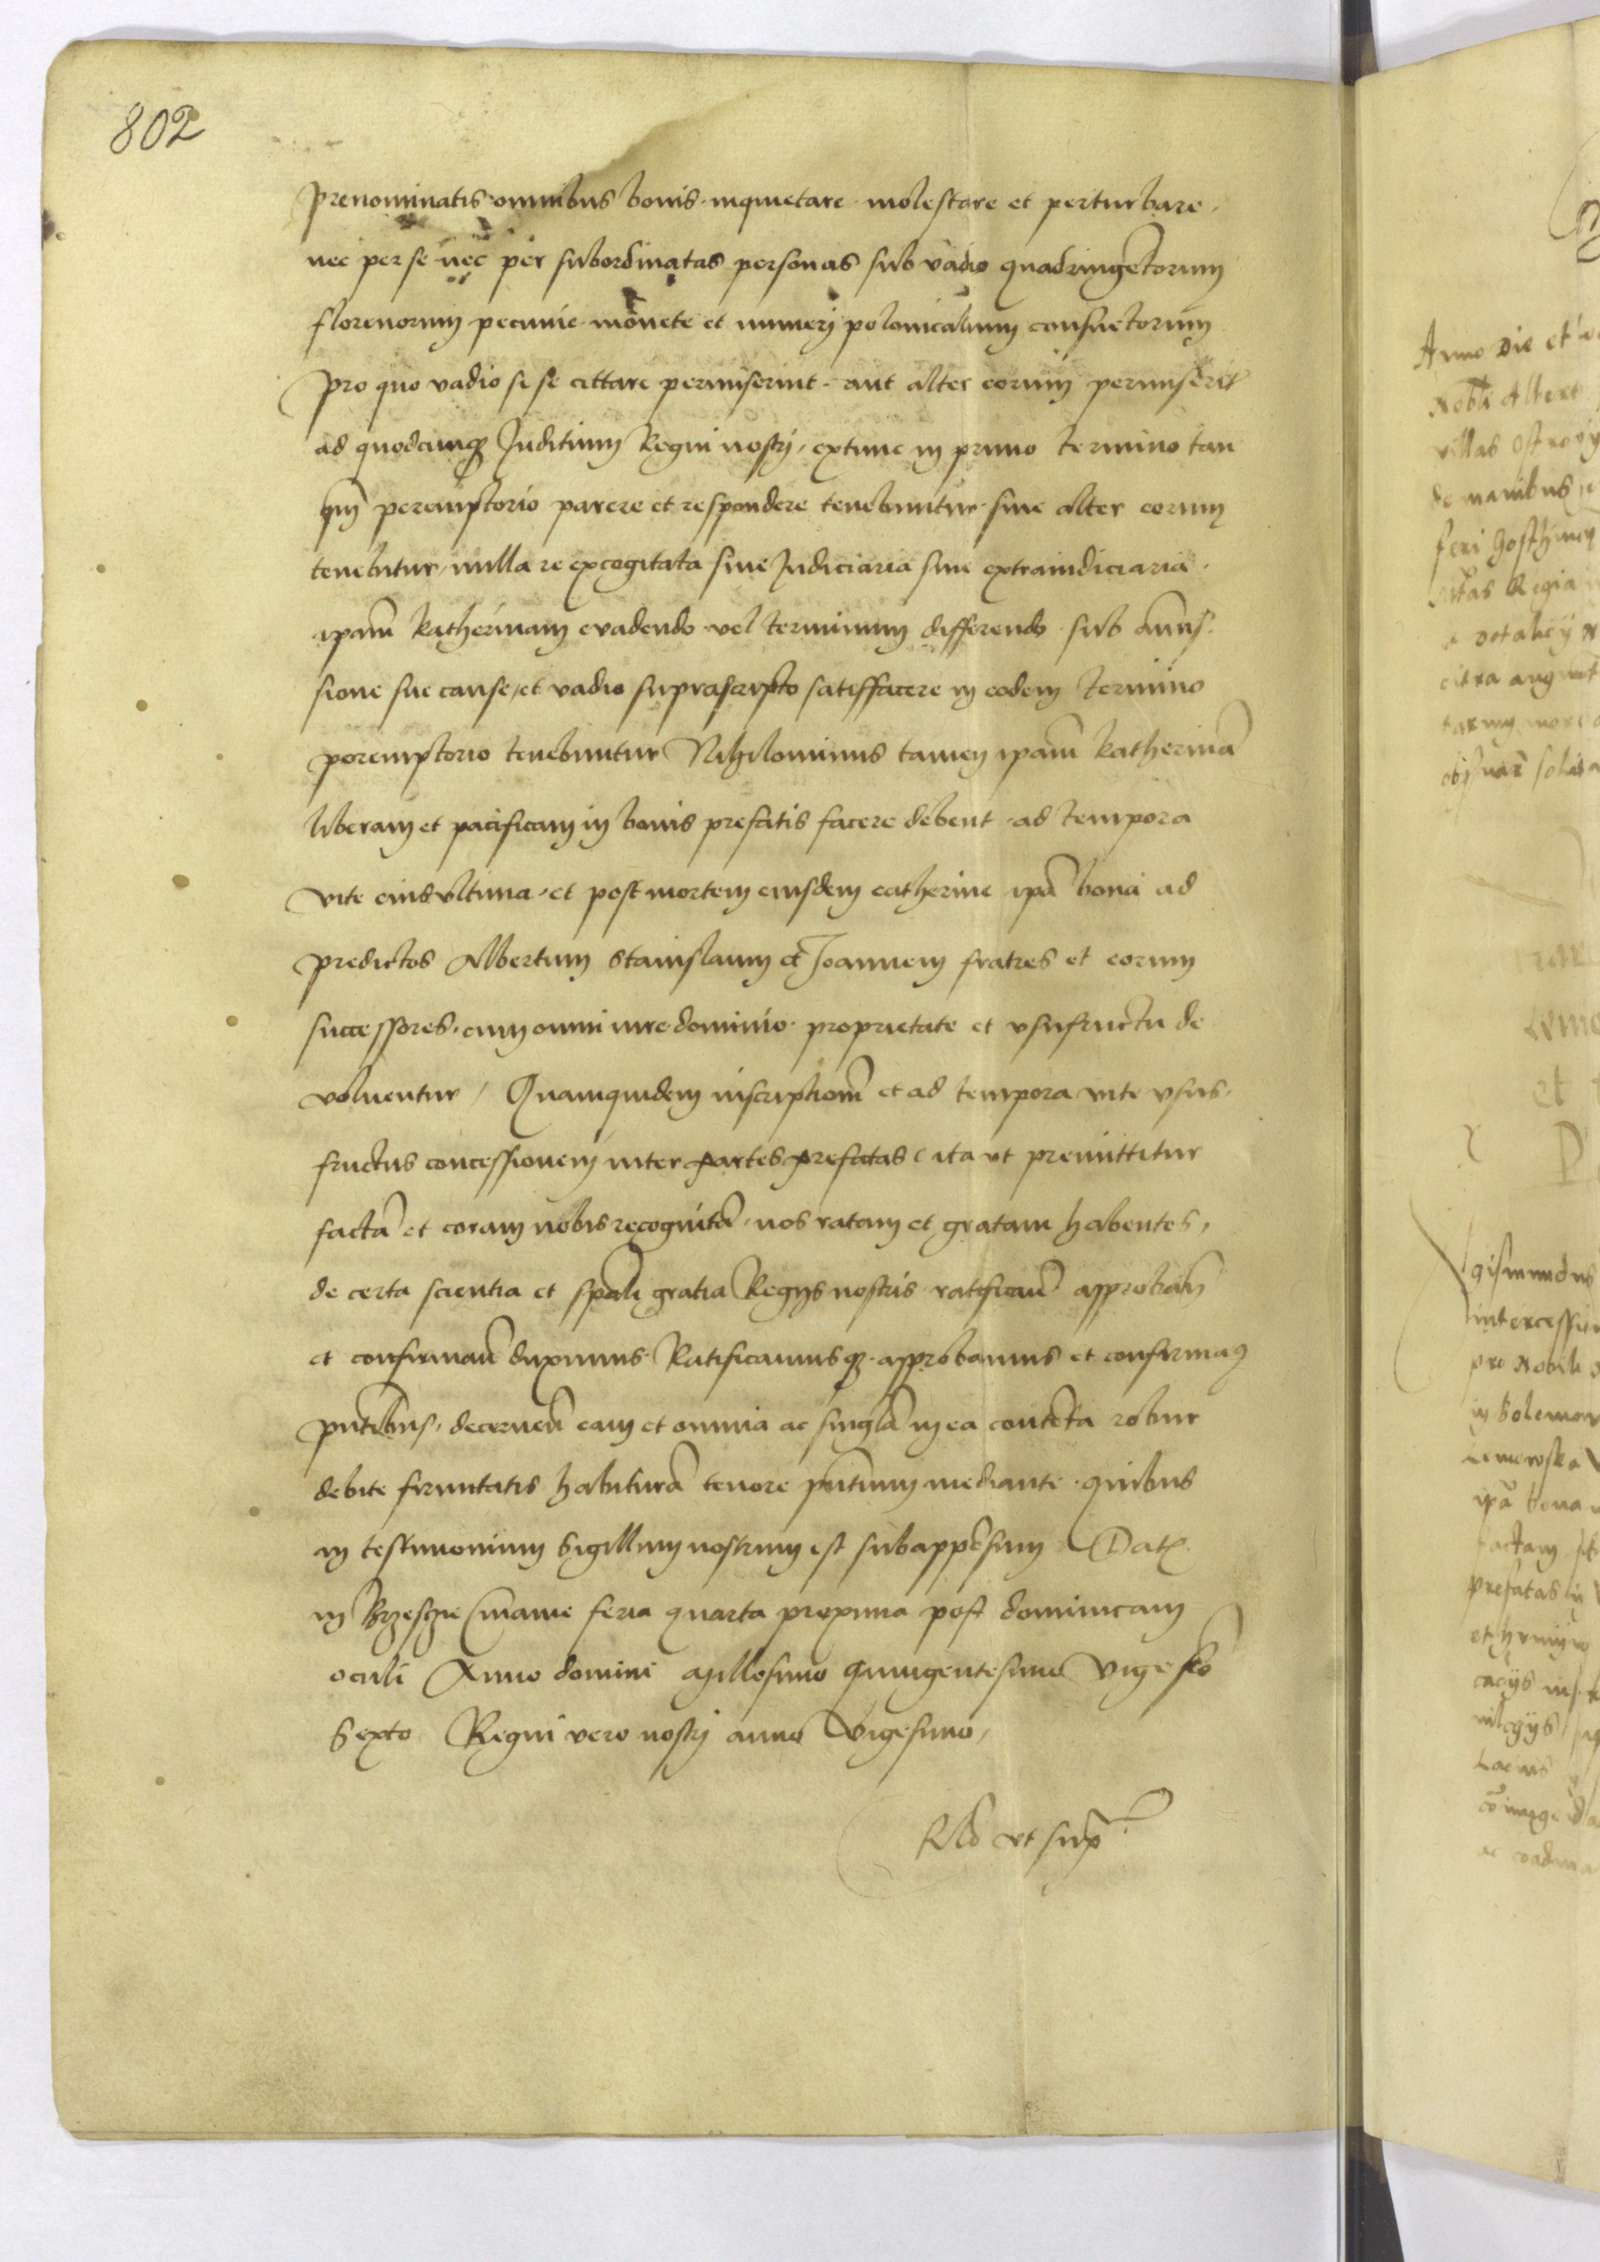 802
prenominatis omnibus bonis inquietare molestare et perturbare
nec per se nec per subordinatas personas sub vadio quadringẽtorum
florenorum pecunie monete et numerj polonicalium consuetorum
pro quo vadio si se cittare permiserint aut alter eorum permiserit
ad quodcumqz Juditium Regni nostrj, extunc in primo termino tan
qm̃ peremptorio parere et respondere tenebuntur siue alter eorum
tenebitur, nulla re excogitata siue Judiciaria siue extraiudiciaria
ipam̃ Katherinam euadendo vel terminum differendo sub amis
sione sue cause, et vadio suprascripto satisffacere in eodem termino
peremptorio tenebuntur Nihilominus tamen ipam̃ Katherinã
liberam et pacificam in bonis prefatis facere debent ad tempora
vite eius vltima, et post mortem eiusdem catherine ipã bona ad
predictos Albertum Stanislaum et Joannem fratres et eorum
successores, cum omni iure dominio proprietate et vsufructu de
voluentur / Quamquidem inscriptiom̃ et ad tempora vite vsus
fructus concessionem inter partes prefatas ita vt premittitur
factã et coram nobis recognitã, nos ratam et gratam habentes,
de certa scientia et spãli gratia Regijs nostris ratificañ approbañ
et confirmañ duximus Ratificamusqz approbamus et confirmam9
pñtibus, decerneñ eam et omnia ac singla in ea contẽta robur
debite firmitatis habiturã tenore pñtium mediante quibus
in testimonium Sigillum nostrum est subappẽsum Dat
in Brzesczie feria quarta proxima post dominicam
oculi Anno domini Millesimo Quingentesimo Vigesso
Sexto Regni vero nostrj anno Vigesimo,
Rlo vt supra